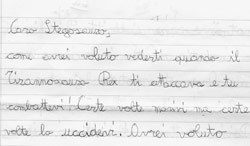 Caro Stegosauro,
come avrei voluto vederti quando il
Tirannosauro Rex ti attaccava e tu
combattevi! Certe volte morivi ma certe
volte lo uccidevi. Avrei voluto